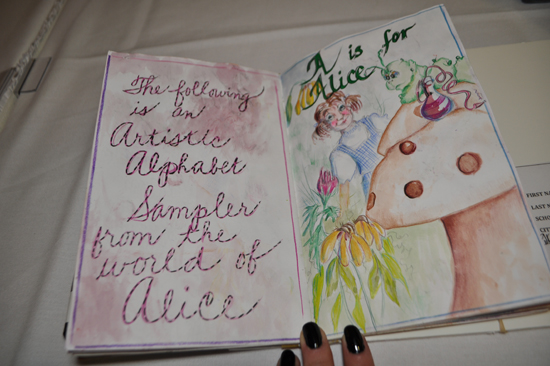 The following
is an
Artistic
Alphabet
Sampler
from the
world of
Alice
A is for
Alice
FIRST N
LAST N
SCHO
CIT